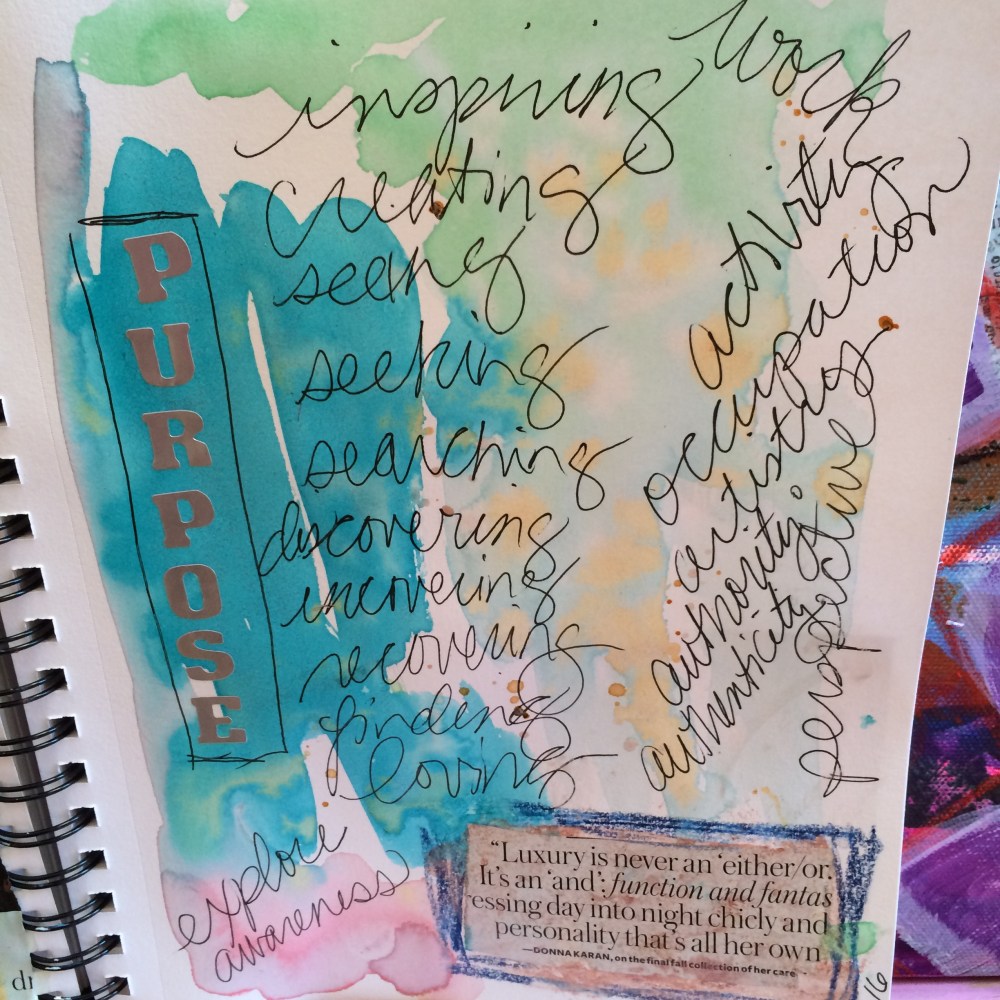 PURPOSE
inspiring work
creating
seeing
seeking
searching
discovering
uncovering
recovering
finding
loving
activity
occupation
artistry
authority
authenticity
perspective
explore
awareness
“Luxury is never an ‘either/or.
It’s an ‘and’: function and fantas
essing day into night chicly and
personality that’s all her own
—DONNA KARAN, on the final fall collection of her care
16